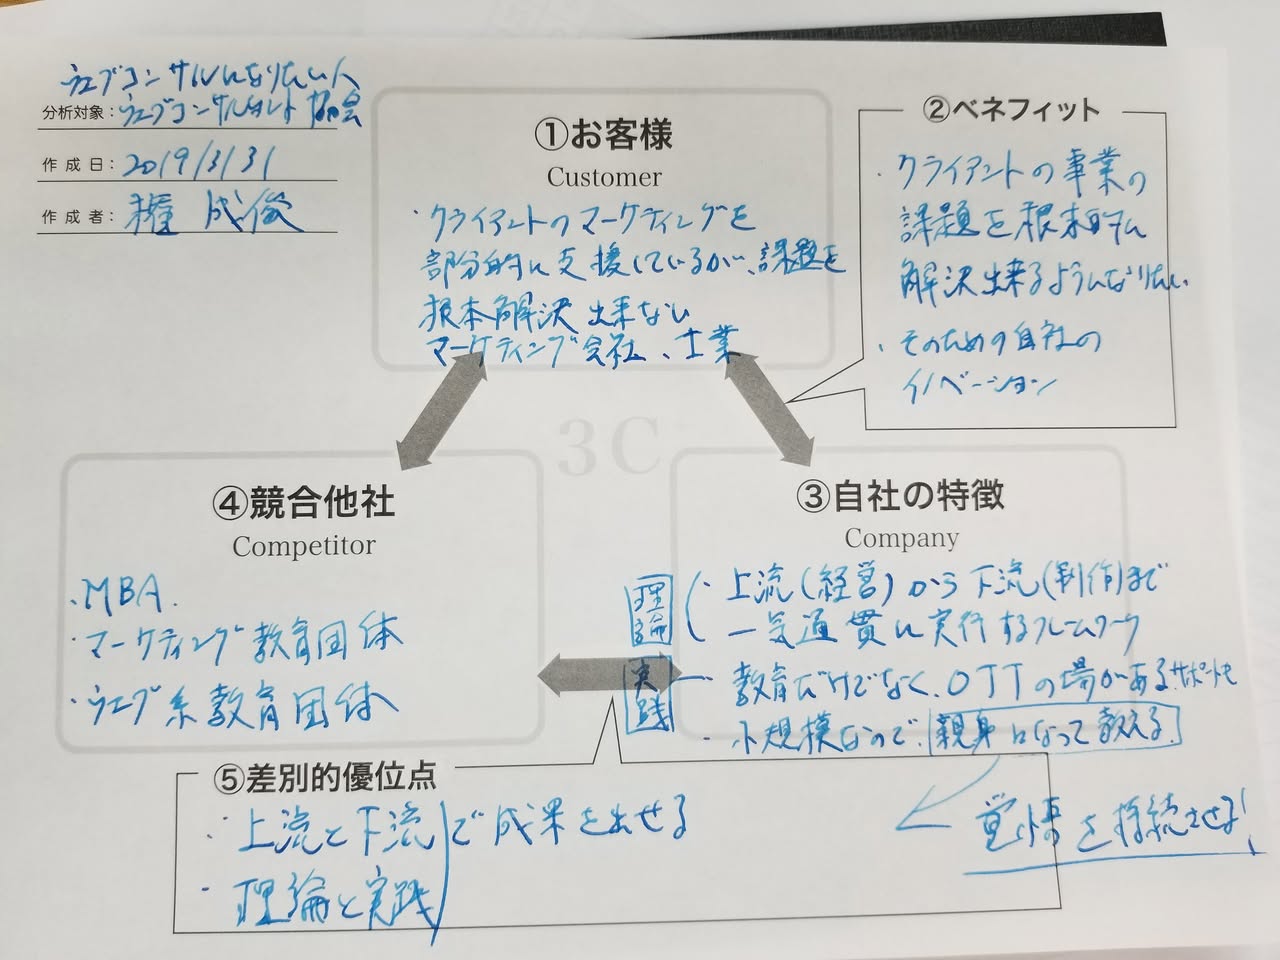 ウェブコンサルになりたい人
分析対象：ウェブコンサルタント協会
作成日：2019/3/31
作成者：権 成俊
①お客様
Customer
・クライアントのマーケティングを
部分的に支援しているが、課題を
根本解決出来ない
マーケティング会社、士業
②ベネフィット
・クライアントの事業の
課題を根本的に
解決出来るようになりたい
・そのための自社の
イノベーション
3C
④競合他社
Competitor
・MBA
・マーケティング教育団体
・ウェブ系教育団体
③自社の特徴
Company
理論
・上流(経営)から下流(制作)まで
一気通貫に実行するフレームワーク
実践
教育だけでなく、OJTの場がある。サポートも
・小規模なので、親身になって教える。
⑤差別的優位点
・上流と下流で成果を出せる
・理論と実践
覚悟を持続させる！